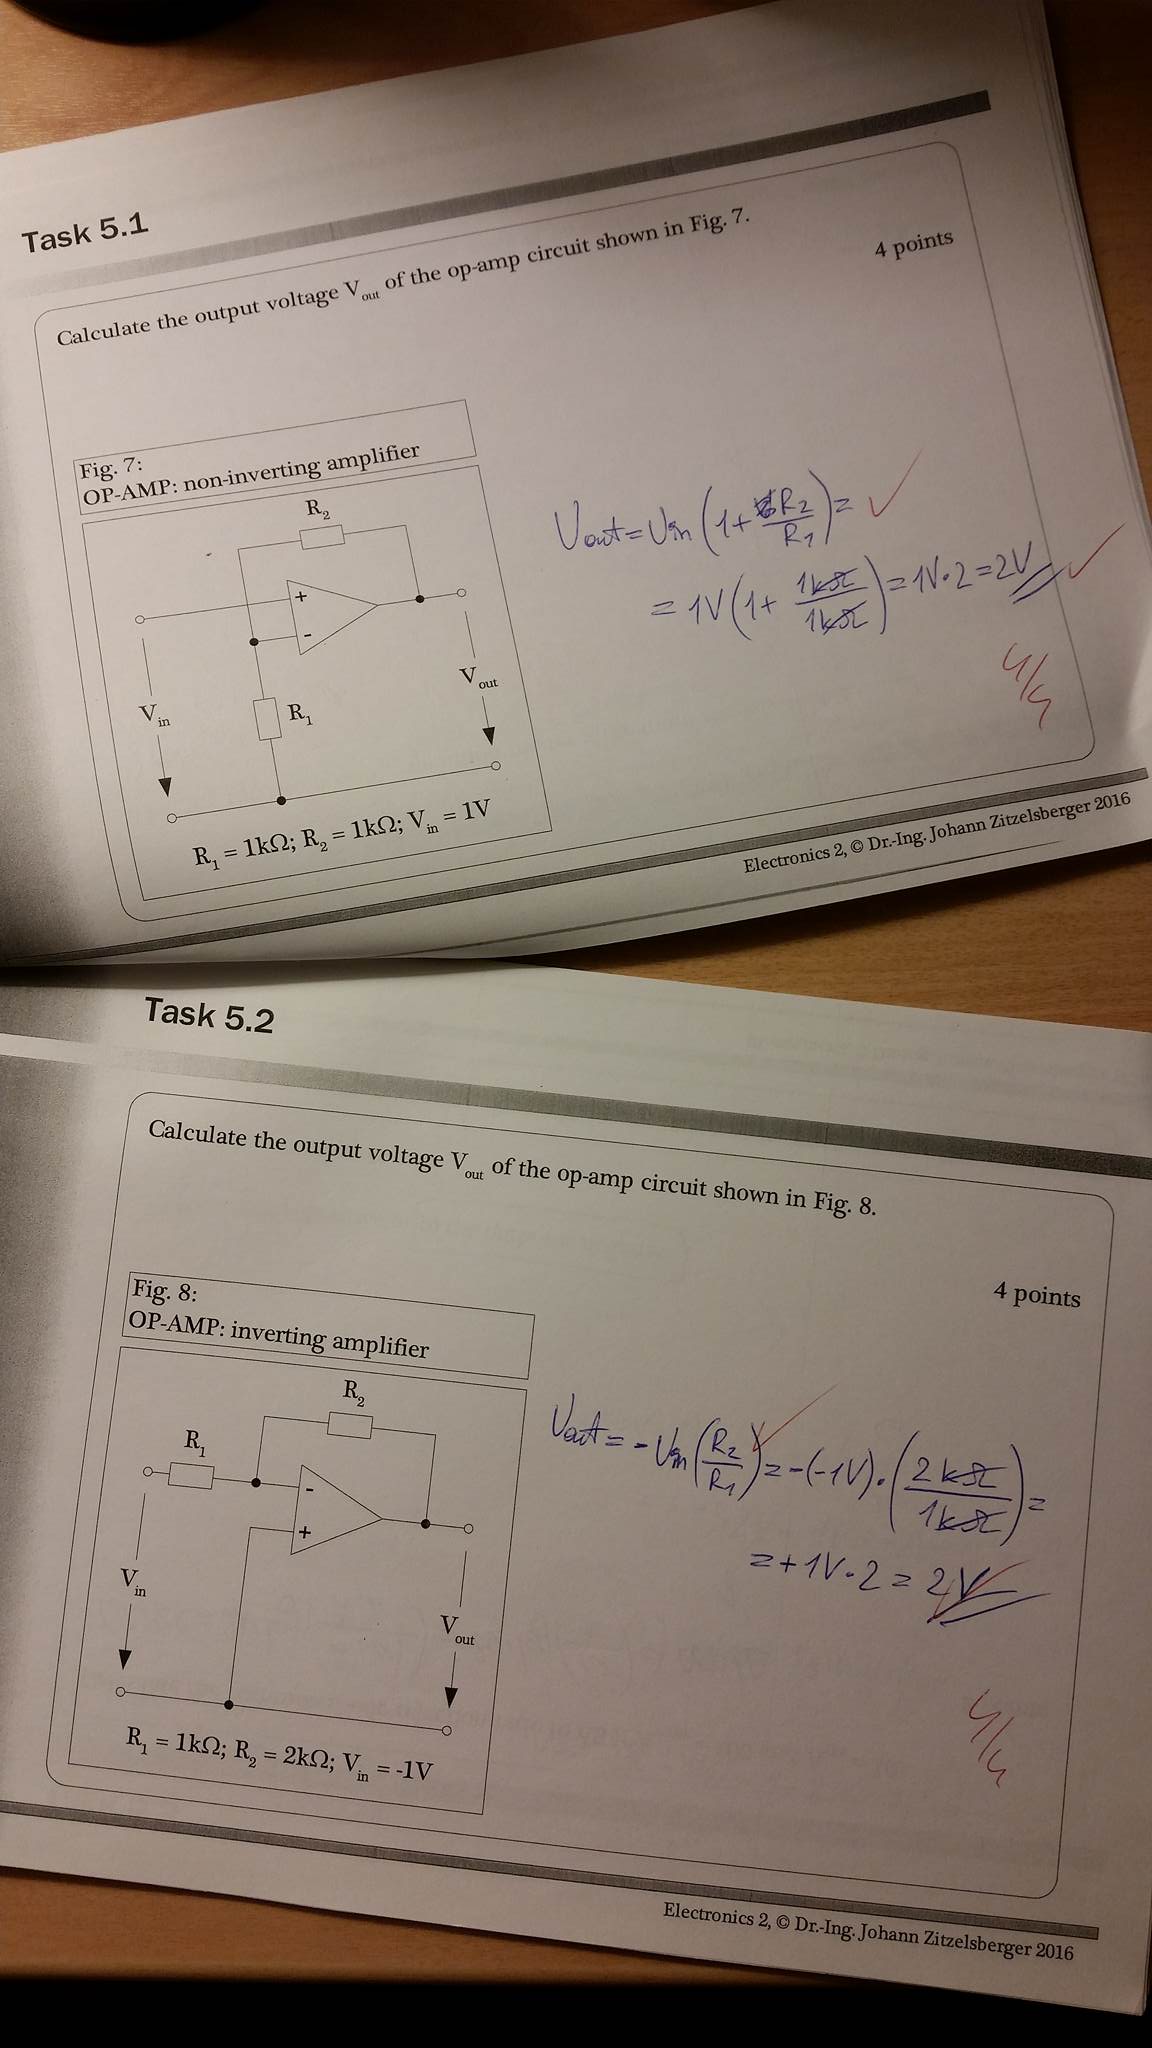 Task 5.1
Calculate the output voltage Vout of the op-amp circuit shown in Fig. 7.
4 points
Fig. 7:
OP-AMP: non-inverting amplifier
R2
+
-
Vin
R1
Vout
R1 = 1kΩ; R2 = 1kΩ; Vin = 1V
Vout = Vin (1 + R2/R1) =
= 1V (1 + 1kΩ/1kΩ) = 1V·2 = 2V
4/4
Electronics 2, © Dr.-Ing. Johann Zitzelsberger 2016
Task 5.2
Calculate the output voltage Vout of the op-amp circuit shown in Fig. 8.
4 points
Fig. 8:
OP-AMP: inverting amplifier
R2
R1
-
+
Vin
Vout
R1 = 1kΩ; R2 = 2kΩ; Vin = -1V
Vout = -Vin (R2/R1) = -(-1V)·(2kΩ/1kΩ) =
= +1V·2 = 2V
4/4
Electronics 2, © Dr.-Ing. Johann Zitzelsberger 2016